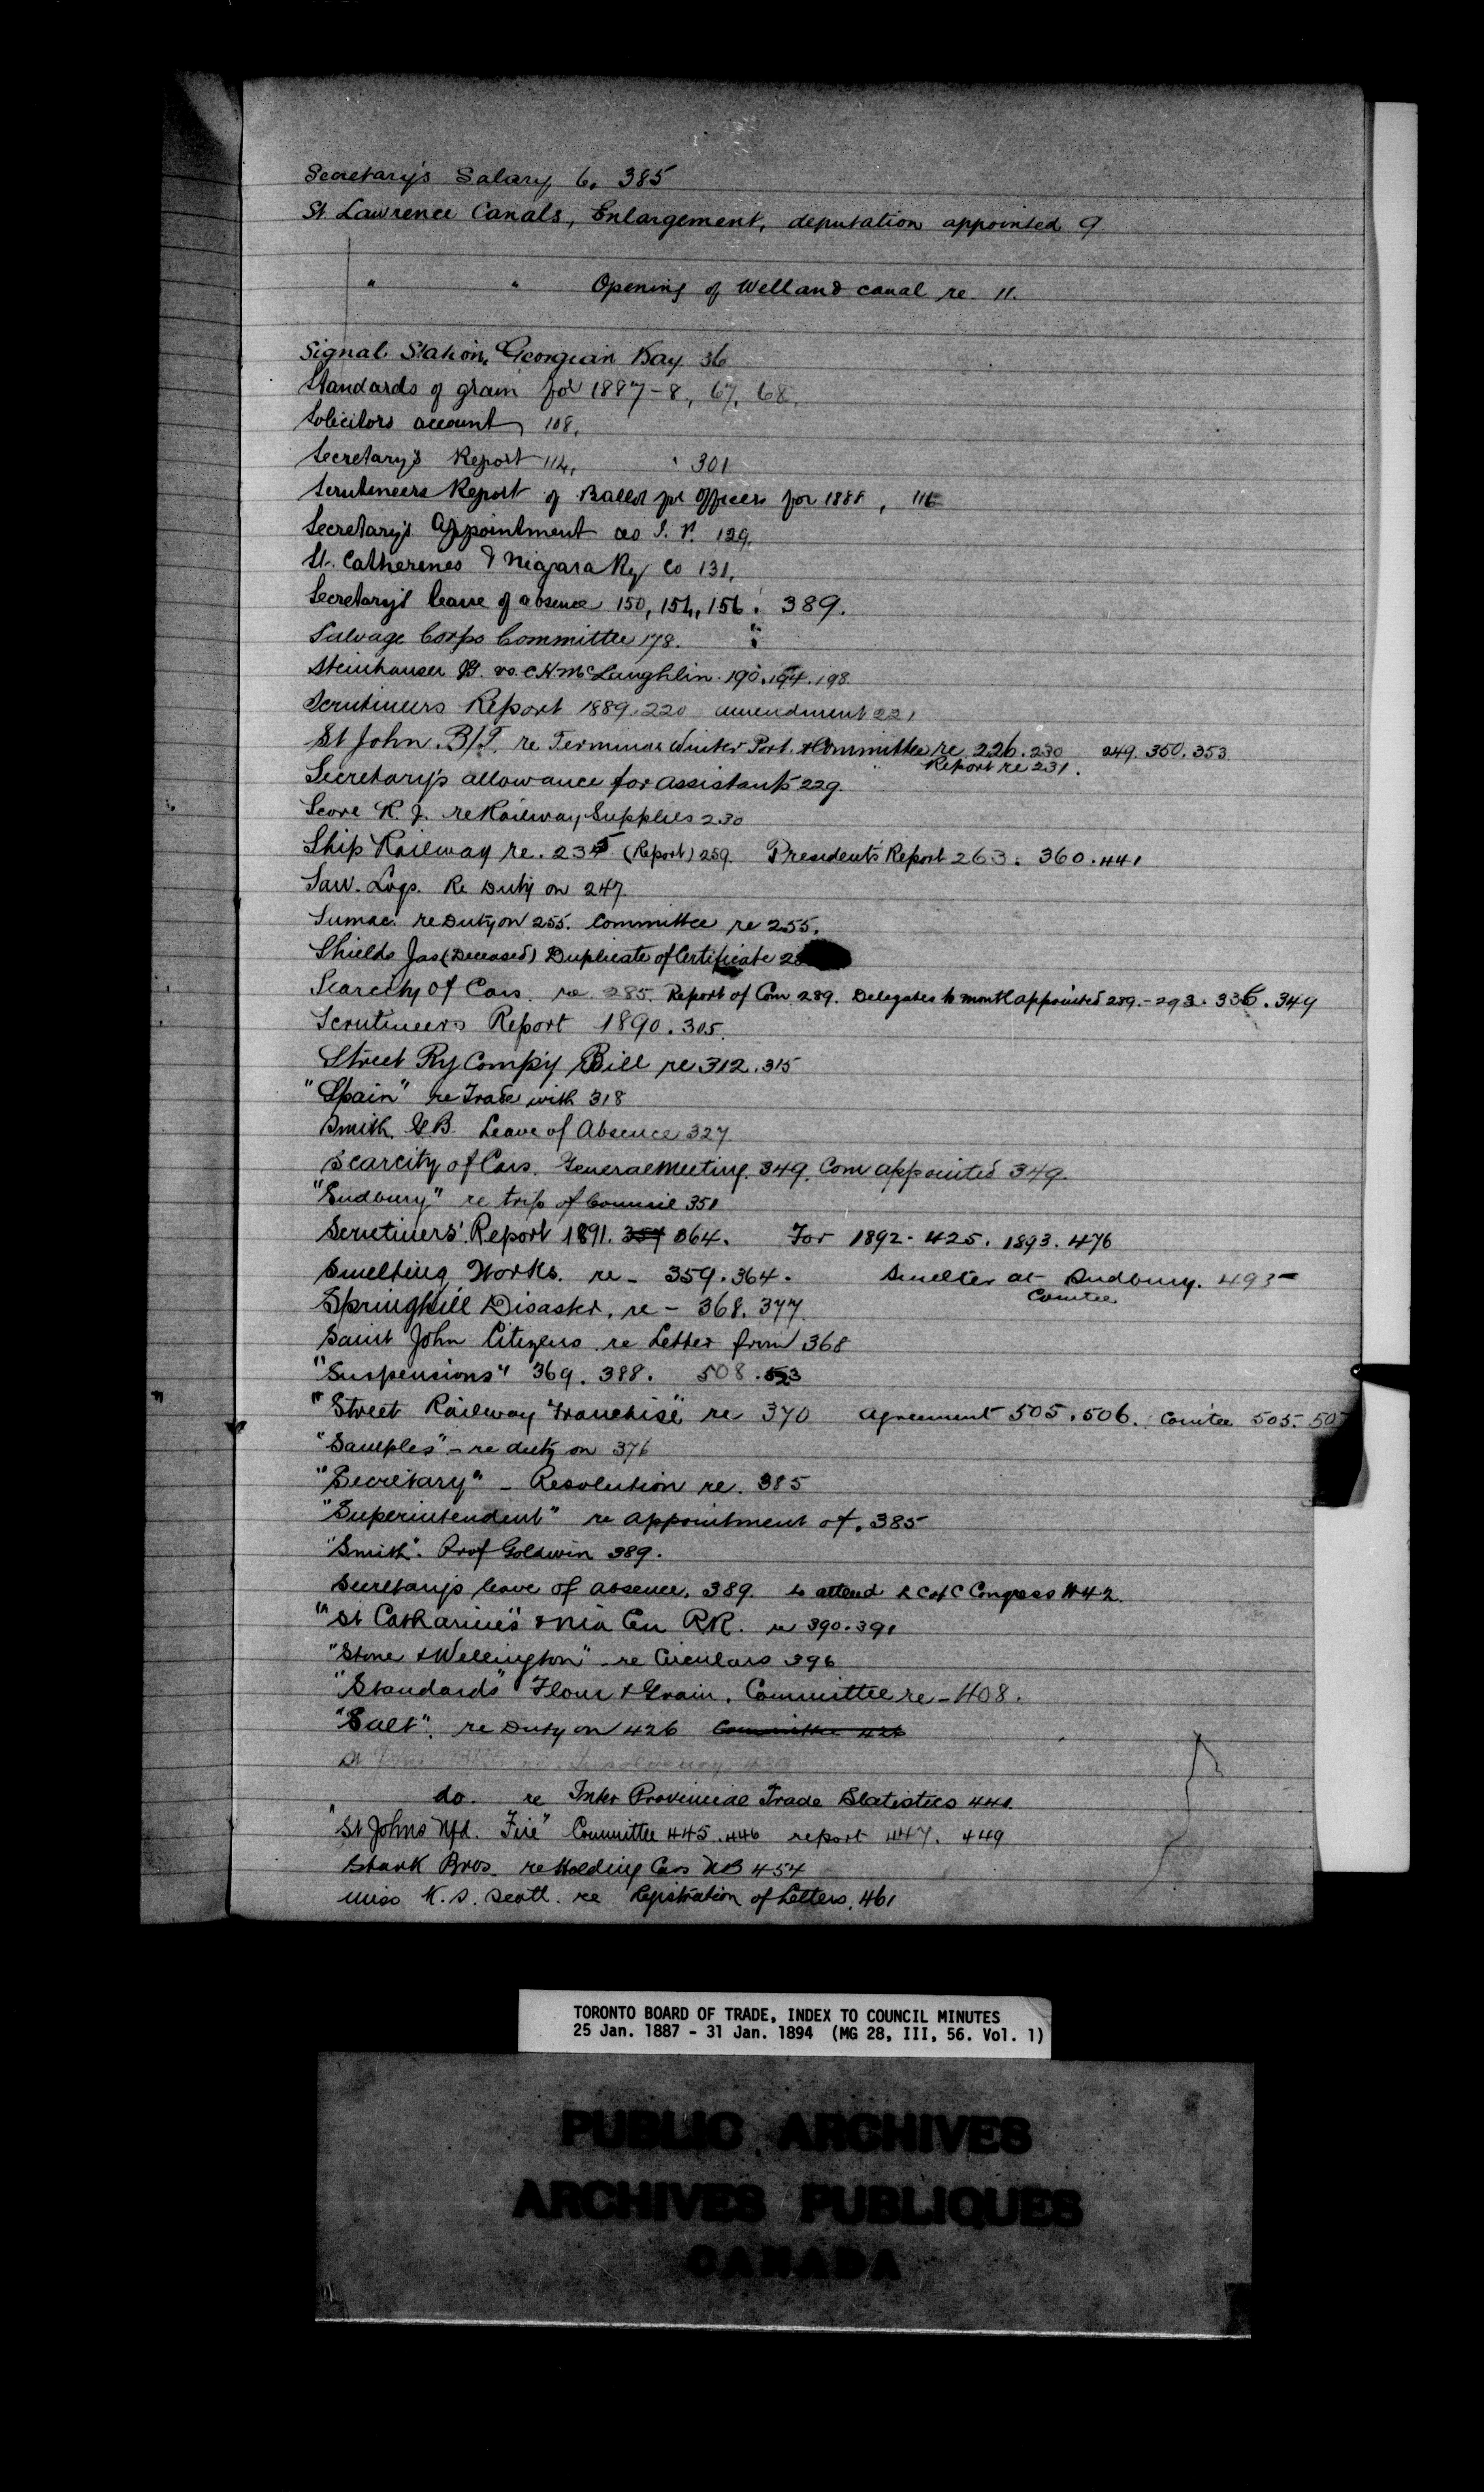 Secretary's Salary 6, 385
St. Lawrence Canals, Enlargement, deputation appointed 9
" " Opening of Welland canal re 11.
Signal Station, Georgian Bay 36
Standards of grain for 1887-8, 67, 68,
Solicitors account 108,
Secretary's Report 114, 301
Scrutineers Report of Ballot for Officers for 1888, 116
Secretary's Appointment as J. P. 129.
St. Catherines & Niagara Ry Co 131,
Secretary's leave of absence 150, 154, 156. 389.
Salvage Corps Committee 178.
Steinhauser B. vs. C H McLaughlin. 190. 194. 198.
Scrutineers Report 1889. 220 amendment 221
St John. B/T. re Terminus Winter Port. & Committee re 226. 230 249. 350. 353
Report re 231.
Secretary's allowance for assistants 229.
Score R. J. re Railway Supplies 230
Ship Railway re. 235 (Report) 259. Presidents Report 263. 360. 441
Saw. Logs. Re Duty on 247.
Sumac. re Duty on 255. Committee re 255.
Shields Jas (Deceased) Duplicate of Certificate
Scarcity Of Cars. re 285. Report of Com 289. Delegates to Montl appointed 289.-293. 336. 349
Scrutineers Report 1890. 305.
Street Ry Comp'y Bill re 312. 315
"Spain" re Trade with 318
Smith. G B. Leave of Absence 327.
Scarcity of Cars. General Meeting. 349. Com appointed 349.
"Sudbury" re trip of Council 351
Scrutineers' Report 1891. 364. For 1892. 425. 1893. 476
Smelting Works. re - 359. 364. Smelter at Sudbury. 495
Comtee
Springhill Disaster. re - 368. 377.
Saint John Citizens re Letter from 368
"Suspensions" 369. 388. 508. 523
"Street Railway Franchise" re 370 Agreement 505. 506. Comtee 505. 507
"Samples" - re duty on 376
"Secretary" - Resolution re. 385
"Superintendent" re appointment of. 385
"Smith". Prof Goldwin 389.
Secretary's leave of absence. 389. to attend C of C Congress 442.
"St Catharines" & Nia Cen RR. re 390. 391
"Stone & Wellington" re Circulars 396
"Standards" Flour & Grain. Committee re - 408.
"Salt". re Duty on 426 Committee 426
do. re Inter Provincial Trade Statistics 440.
"St Johns Nfd. Fire" Committee 445. 446 report 447. 449
Stark Bros. re Holding Cars NB 454
Miss K. S. Scott. re Registration of Letters. 461
TORONTO BOARD OF TRADE, INDEX TO COUNCIL MINUTES
25 Jan. 1887 - 31 Jan. 1894 (MG 28, III, 56. Vol. 1)
PUBLIC ARCHIVES
ARCHIVES PUBLIQUES
CANADA